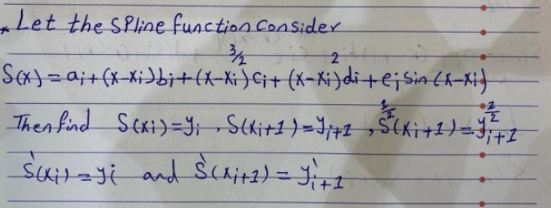 * Let the spline function consider
S(x) = ai + (x-xi)bi + (x-xi)^3/2 ci + (x-xi)^2 di + ei sin(x-xi)
Then find S(xi)=yi , S(xi+1)=yi+1 , S^(1/2)(xi+1)=y^(1/2)i+1
S'(xi)=y'i and S'(xi+1)=y'i+1